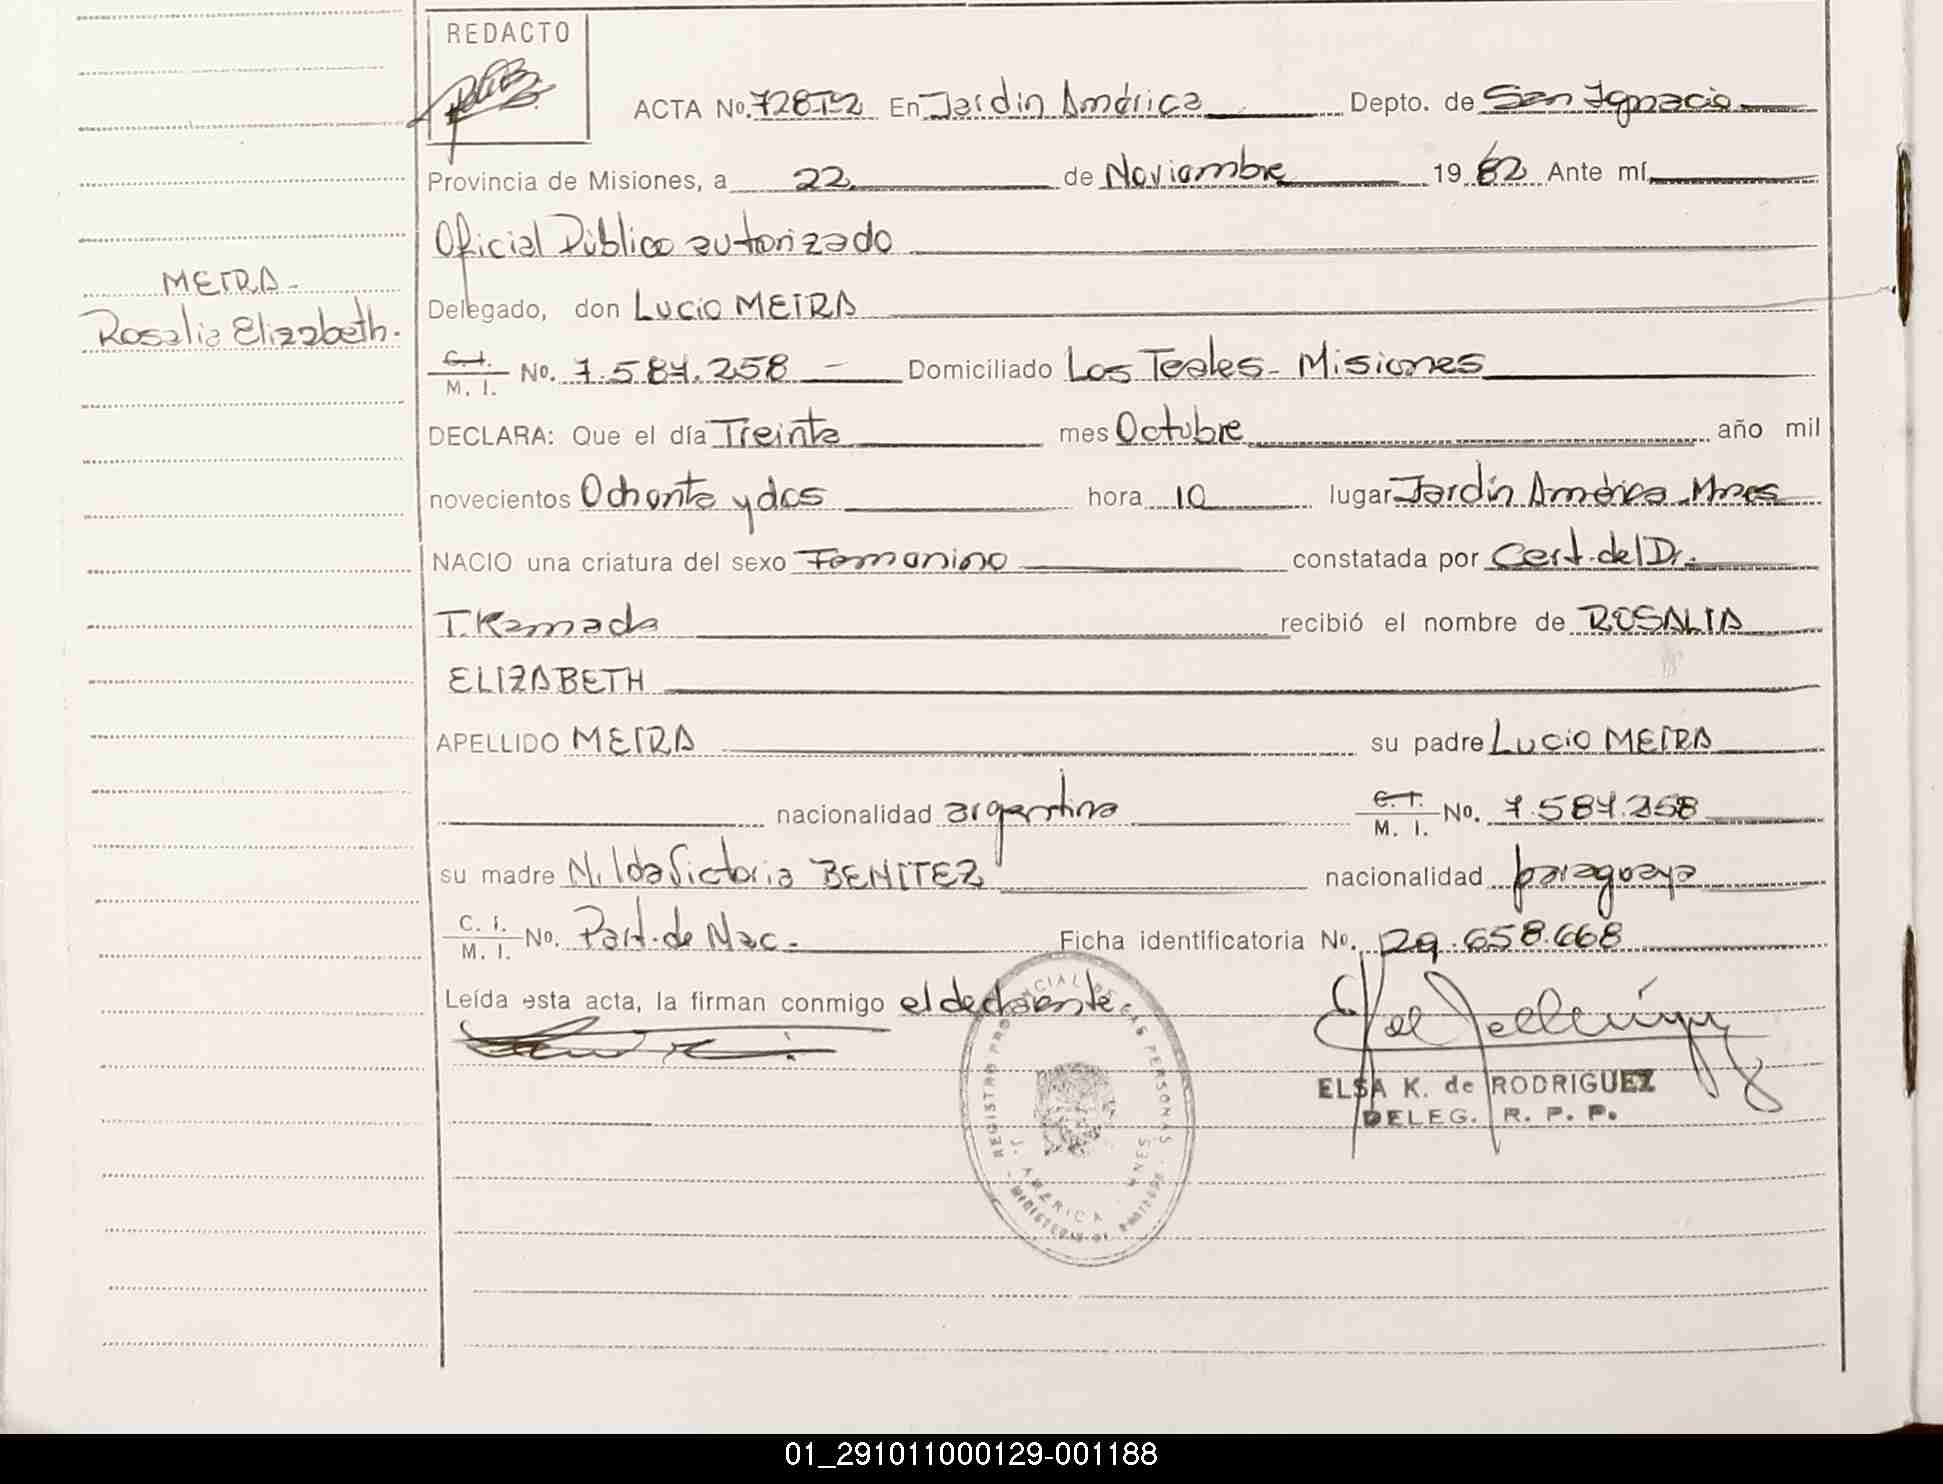 REDACTO
ACTA No. 728T2 En Jardín América Depto. de San Ignacio
Provincia de Misiones, a 22 de Noviembre 19 82 Ante mí
Oficial Público autorizado
METRA -
Rosalia Elizabeth.
Delegado, don Lucio MEIRA
C. I. M. I. No. 7.584.258 - Domiciliado Los Teales - Misiones
DECLARA: Que el día Treinta mes Octubre año mil
novecientos Ochenta y dos hora 10 lugar Jardín América Mnes
NACIO una criatura del sexo Femenino constatada por Cert. del Dr.
T. Kamada recibió el nombre de ROSALIA
ELIZABETH
APELLIDO MEIRA su padre Lucio MEIRA
nacionalidad argentina C. I. M. I. No. 7.584.258
su madre Nilda Victoria BENITEZ nacionalidad paraguaya
C. I. M. I. No. Part. de Nac. - Ficha identificatoria No. 29.658.668
Leída esta acta, la firman conmigo el declarante
REGISTRO PROVINCIAL DE LAS PERSONAS
J. AMERICA MNES
ELSA K. de RODRIGUEZ
DELEG. R. P. P.
01_291011000129-001188